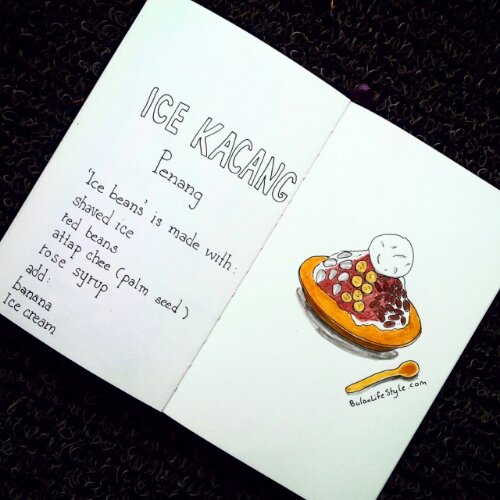 ICE KACANG
Penang
'Ice beans' is made with:
shaved ice
red beans
attap chee (palm seed)
rose syrup
add:
banana
Ice cream
BulanLifeStyle.com